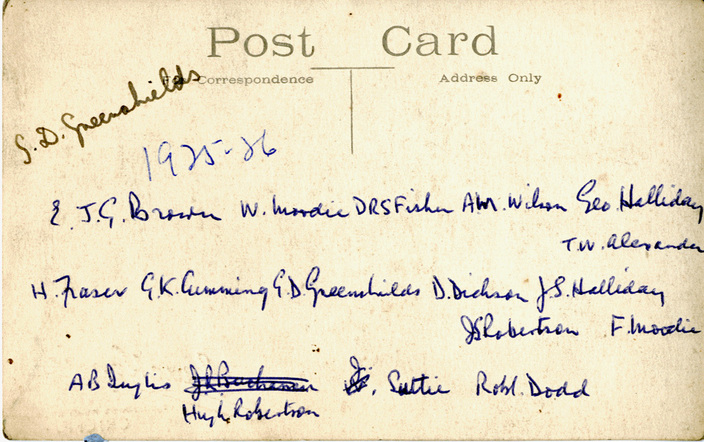 Post Card
For Correspondence Address Only
G. D. Greenshields
1925-26
E. J.G. Brown W. Moodie DRS Fisher AW. Wilson Geo. Halliday
T.W. Alexander
H. Fraser G.K. Cumming G.D. Greenshields D. Dickson J.S. Halliday
JS Robertson F. Moodie
AB Inglis J.R. Buchanan J. Suttie Robt. Dodd
Hugh Robertson